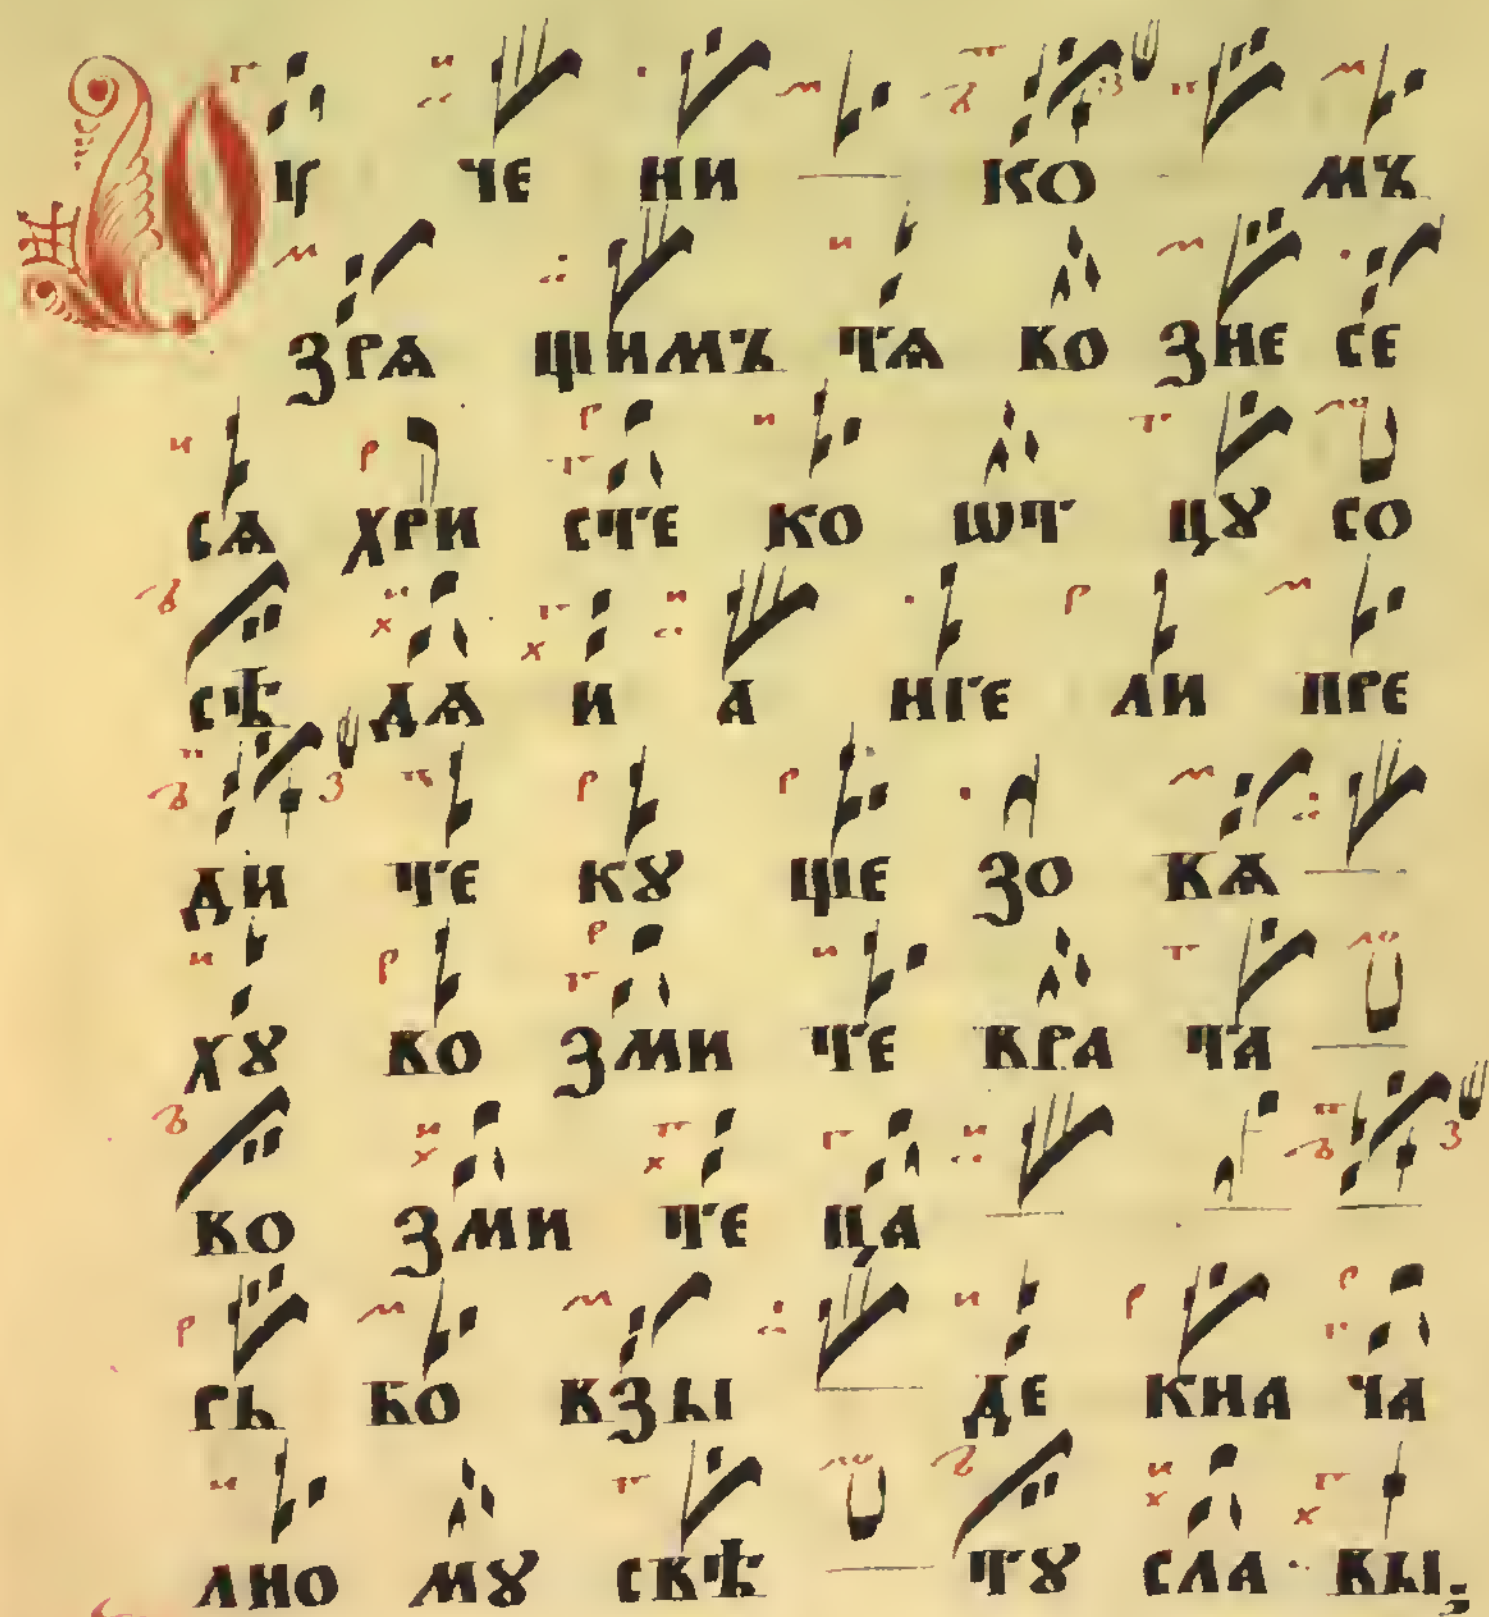 Оу че ни ко мъ
зрѧ щимъ тѧ во зне се
сѧ хри сте ко ѿт цꙋ со
сѣ дѧ и а нге ли пре
ди те кꙋ ще зо вѧ
хꙋ во зми те вра та
во зми те ца
рь бо взы де кна ча
лно мꙋ свѣ тꙋ сла вы;